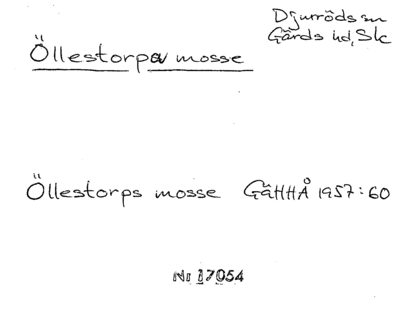 Djurröds sn
Gärds hd, Sk
Öllestorpa mosse
Öllestorps mosse GäHHÅ 1957:60
Nr 17054